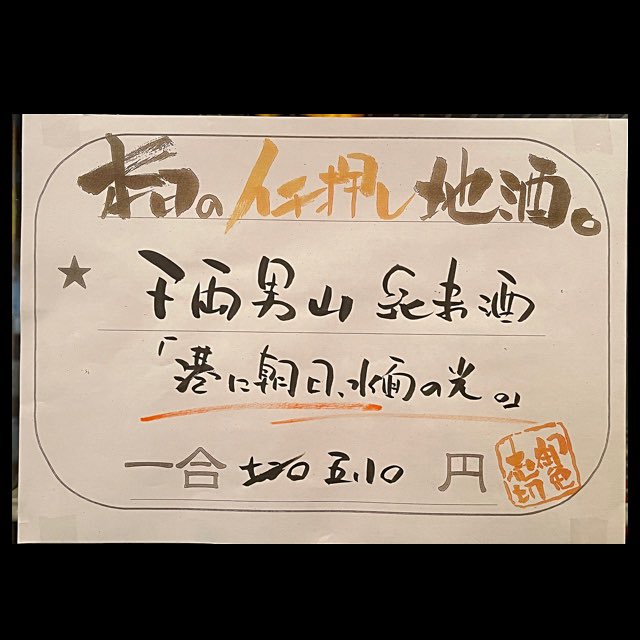 本日のイチ押し地酒。
★ 千両男山 純米酒
「港に朝日、水面の光。」
一合 五.10 円
売切御免